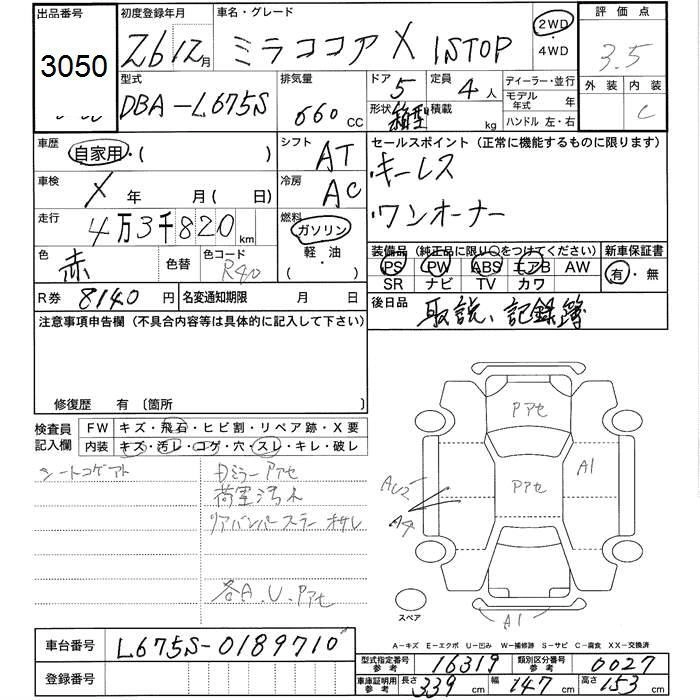 出品番号
3050
初度登録年月
26 12月
車名・グレード
ミラココア X 1STOP
2WD
・4WD
評価点
3.5
型式
DBA-L675S
排気量
660 CC
ドア 5
定員 4人
ディーラー・並行
モデル年式 年
形状 箱型
積載 kg
ハンドル 左・右
外装
内装
C
車歴
自家用・( )
シフト
AT
セールスポイント (正常に機能するものに限ります)
・キーレス
・ワンオーナー
車検
X 年 月(日)
冷房
AC
走行
4万3千820km
燃料
ガソリン
軽・油
(・)
色
赤
色替
色コード
R40
装備品 (純正品に限り○をつけてください)
PS PW ABS エアB AW
SR ナビ TV カワ
新車保証書
有・無
R券 8140 円
名変通知期限 月 日
後日品
取説、記録簿
注意事項申告欄 (不具合内容等は具体的に記入して下さい)
修復歴 有 (箇所
検査員
記入欄
FW キズ・飛石・ヒビ割・リペア跡・X要
内装 キズ・汚レ・コゲ・穴・スレ・キレ・破レ
シートコゲアト
Dミラー Pアセ
荷室汚れ
リアバンパーステー オサレ
各A.U.Pアセ
Pアセ
Pアセ
A1
AU2
A4
A1
スペア
A-キズ E-エクボ U-凹み W-補修跡 S-サビ C-腐食 XX-交換済
車台番号
L675S-0189710
登録番号
型式指定番号
参考
16319
類別区分番号
参考
0027
車庫証明用
参考
長さ 339 cm
幅 147 cm
高さ 153 cm